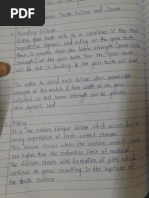 Gear Tooth Failure and Causes
1. Bending Failure
Every gear tooth acts as a cantilever. If the total
repetitive dynamic load acting on the gear tooth
is greater than the beam strength
strength of the gear tooth then the gear tooth
will fail in bending i.e. the gear tooth will break
In order to avoid such failure, the
of the gear is
adjusted so that beam strength can be greater than
dynamic load
2. Pitting
It is the surface fatigue failure which occurs due to
many repetition of Hertz contact stresses.
The failure occurs when the surface contact stresses
are higher than the endurance limit of material.
The failure starts with formation of pits which
continue to grow resulting in the rupture of
the tooth surface.